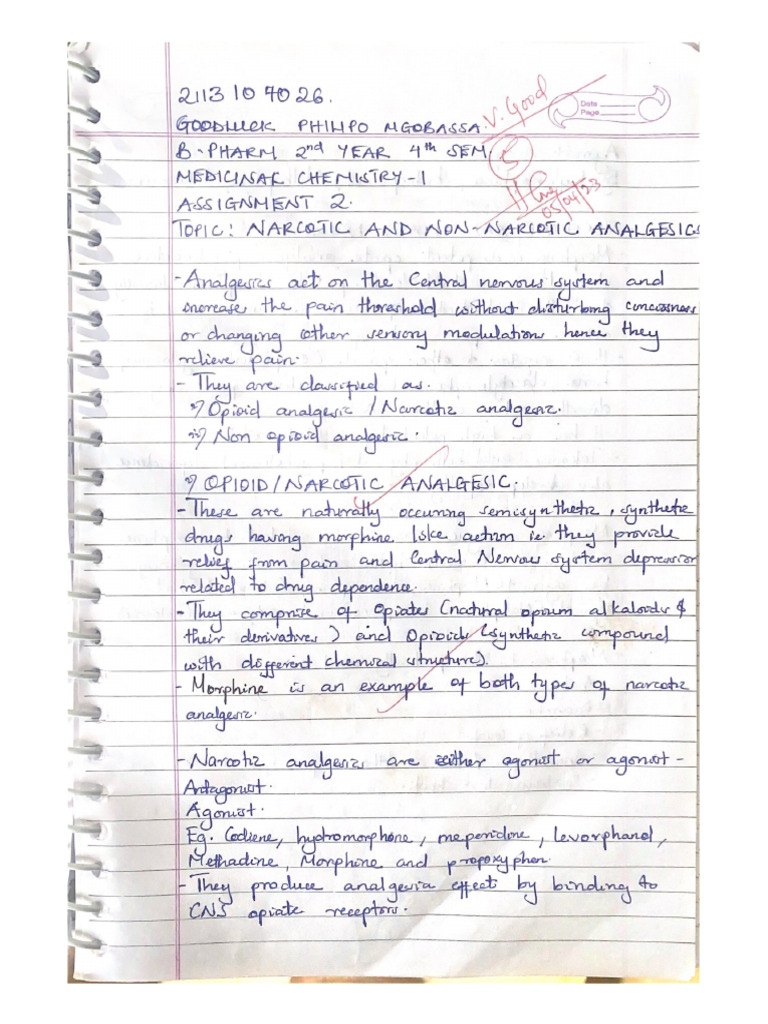 2113107026.
GOODLUCK PHILIPO MGOBASSA. V. Good
Date
Page
B-PHARM 2nd YEAR 4th SEM 5
MEDICINAL CHEMISTRY-1
ASSIGNMENT 2. 05/04/23
TOPIC: NARCOTIC AND NON-NARCOTIC ANALGESICS
- Analgesics act on the Central nervous system and
increase the pain thorshold without disturbing conciosness
or changing other sensory modulation hence they
relieve pain.
- They are classified as.
i) Opioid analgesic / Narcotic analgesic.
ii) Non opioid analgesic.
i) OPIOID/NARCOTIC ANALGESIC.
- These are naturally occuring semisynthetic, synthetic
drugs having morphine like action ie they provide
relief from pain and Central Nervous system depression
related to drug dependence.
- They comprise of Opiates (natural opium alkaloids &
their derivatives) and Opioids (synthetic compound
with different chemical structure).
- Morphine is an example of both types of narcotic
analgesic.
- Narcotic analgesics are either agonist or agonist-
Antagonist.
Agonist.
Eg. Codiene, hydromorphone, meperidone, levorphanol,
Methadine, Morphine and propoxyphen.
- They produce analgesia effect by binding to
CNS opiate receptors.